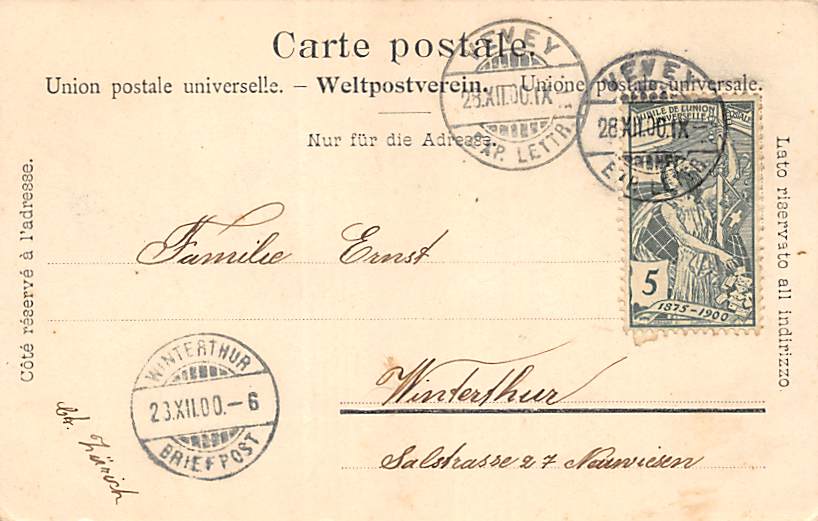 Carte postale.
Union postale universelle. – Weltpostverein. – Unione postale universale.
Nur für die Adresse.
Côté réservé à l'adresse.
Lato riservato all indirizzo.
VEVEY
28.XII.00.IX
EXP. LETTR.
VEVEY
28.XII.00.IX
EXP. LETTR.
JUBILE DE L'UNION
UNIVERSELLE
5
1875-1900
Familie Ernst
WINTERTHUR
23.XII.00.-6
BRIEFPOST
Winterthur
Salstrasse 27 Neuwiesen
Ct. Zürich